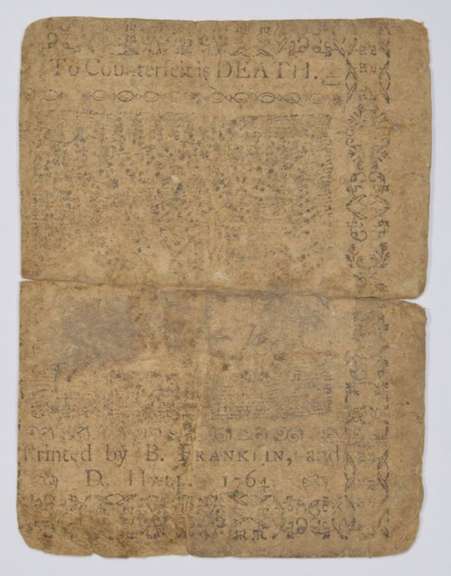 To Counterfeit is DEATH.
Printed by B. FRANKLIN, and
D. Hall. 1764